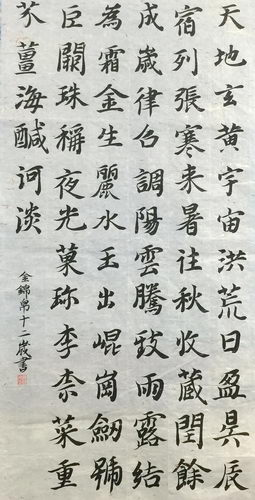 天地玄黄宇宙洪荒日盈昃辰
宿列張寒来暑往秋收藏閏餘
成歲律召調陽雲騰致雨露結
為霜金生麗水玉出崐崗劒號
巨闕珠稱夜光菓珎李柰菜重
芥薑海鹹河淡
金錦十二歲書